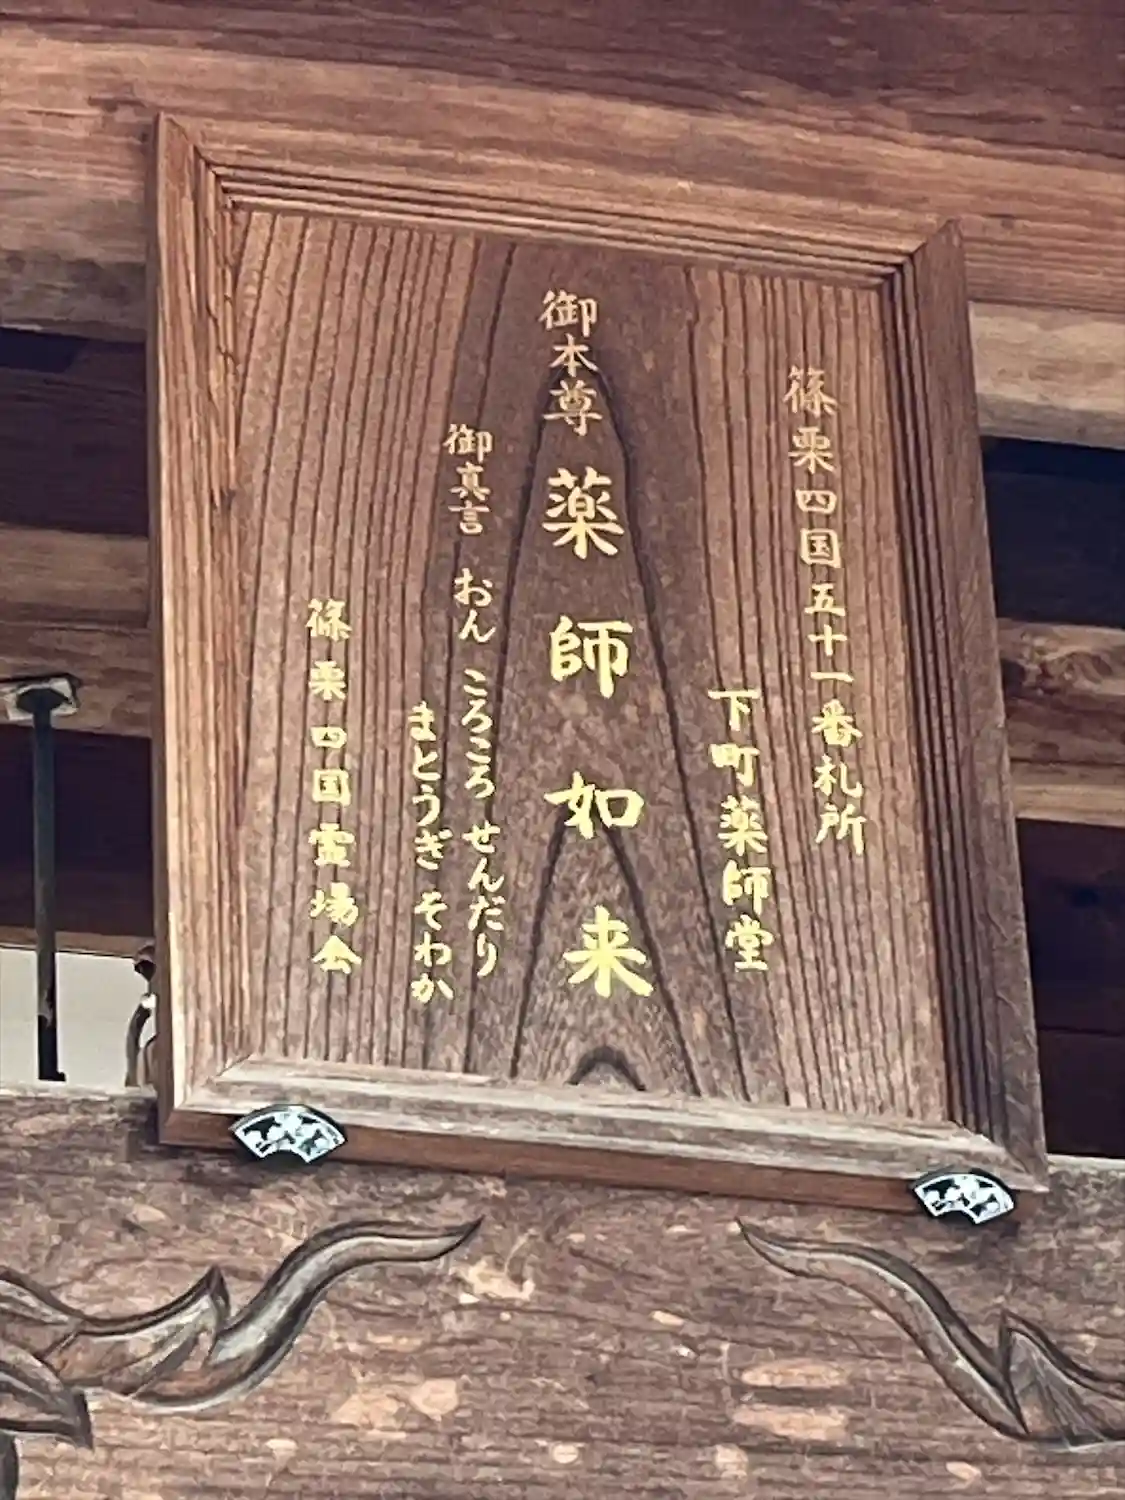 篠栗四国五十一番札所
下町薬師堂
御本尊 薬師如来
御真言 おん ころころ せんだり
まとうぎ そわか
篠栗四国霊場会